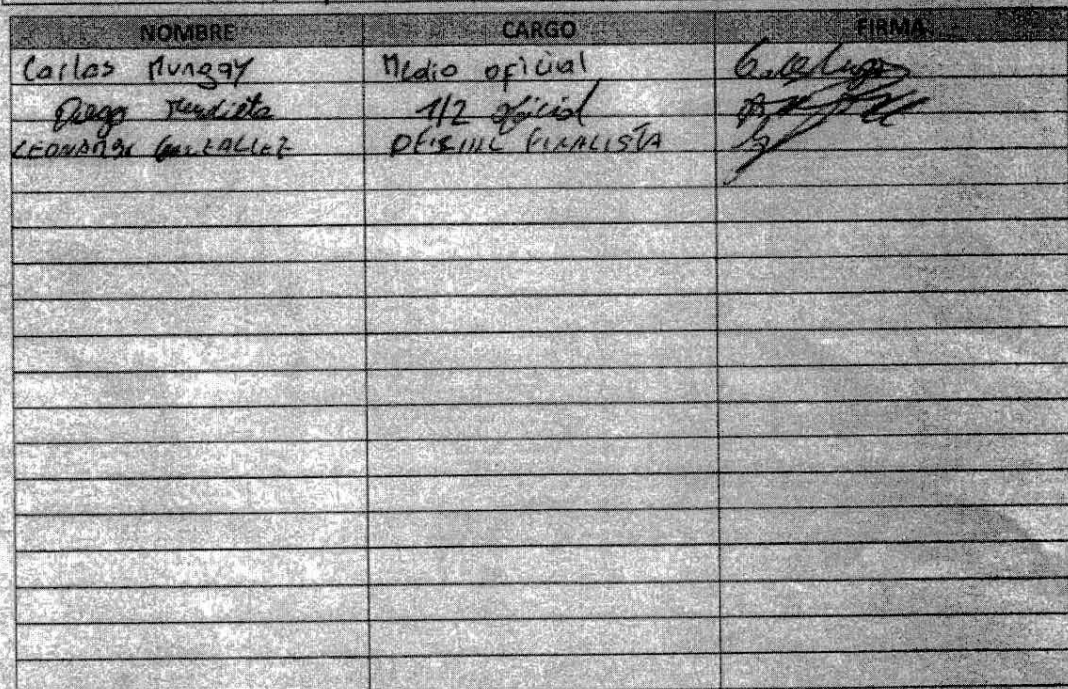 NOMBRE CARGO FIRMA
Carlos Mungay Medio oficial
Diego Mendieta 1/2 oficial
LEONARDO GONZALEZ FINALISTA